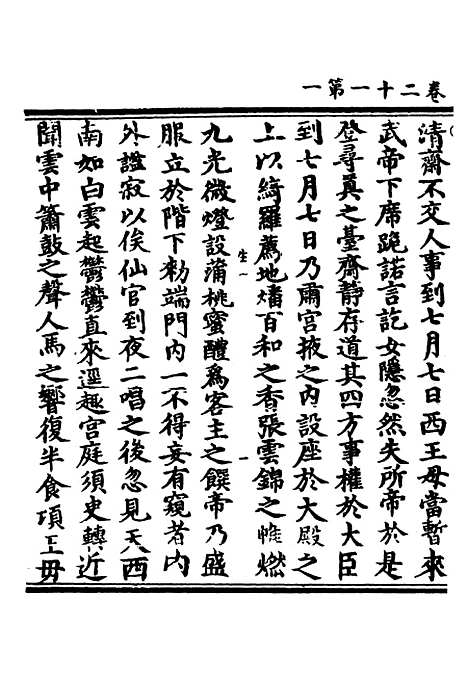 卷二十一第一
清齋不交人事到七月七日西王母當暫來
武帝下席跪諾言訖女隱忽然失所帝於是
登尋真之臺齋靜存道其四方事權於大臣
到七月七日乃爾宮掖之內設座於大殿之
上以綺羅薦地燔百和之香張雲錦之帷燃
九光微燈設蒲桃蜜醴為客主之饌帝乃盛
服立於階下勑端門內一不得妄有窺者內
外謐寂以俟仙官到夜二唱之後忽見天西
南如白雲起鬱鬱直來逕趣宮庭須臾轉近
聞雲中簫鼓之聲人馬之響復半食頃王母
生一